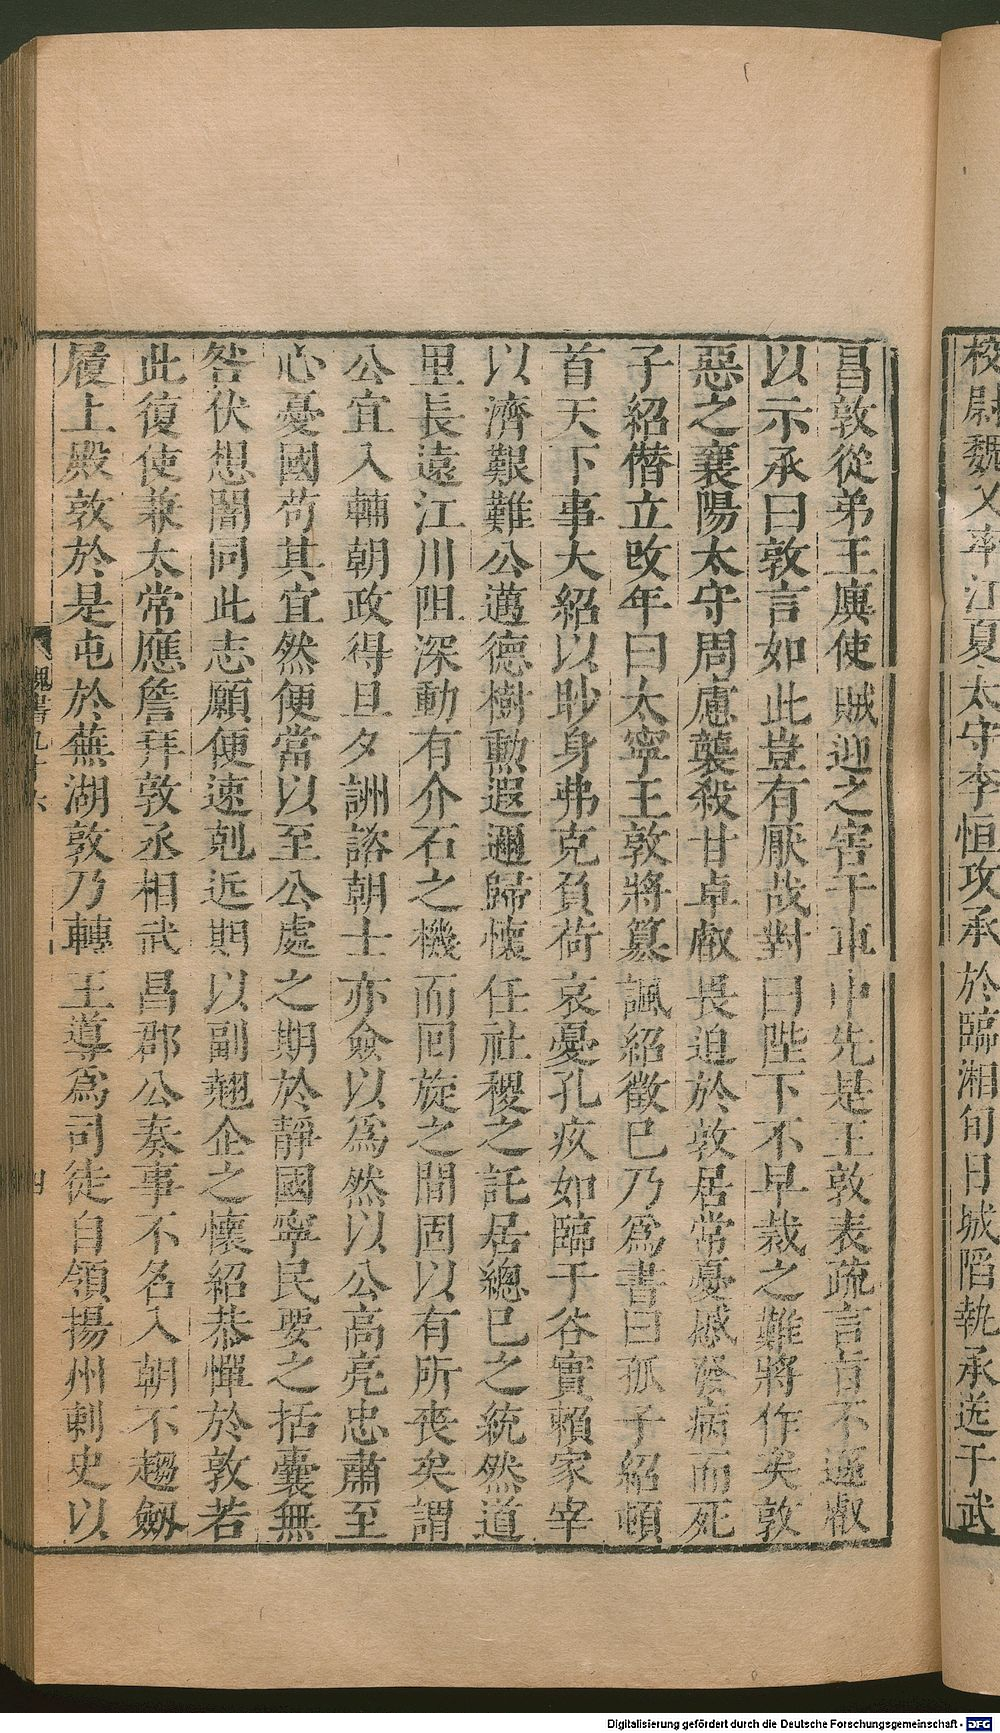 校尉魏乂率江夏太守李恒攻承於臨湘旬日城陷執承送于武
昌敦從弟王廙使賊迎之害于車中先是王敦表疏言旨不遜叡
以示承曰敦言如此豈有厭哉對曰陛下不早裁之難將作矣敦
惡之襄陽太守周慮襲殺甘卓叡畏迫於敦居常憂慼發病而死
子紹僭立改年曰太寧王敦將篡諷紹徵己乃為書曰孤子紹頓
首天下事大紹以眇身弗克負荷哀憂孔疚如臨于谷實賴冢宰
以濟艱難公邁德樹勳遐邇歸懷任社稷之託居總己之統然道
里長遠江川阻深動有介石之機而回旋之間固以有所喪矣謂
公宜入輔朝政得旦夕詶諮朝士亦僉以為然以公高亮忠肅至
心憂國苟其宜然便當以至公處之期於靜國寧民要之括囊無
咎伏想闇同此志願便速剋近期以副翹企之懷紹恭憚於敦若
此復使兼太常應詹拜敦丞相武昌郡公奏事不名入朝不趨劔
履上殿敦於是屯於蕪湖敦乃轉王導為司徒自領揚州刺史以
魏書九十六
四
Digitalisierung gefördert durch die Deutsche Forschungsgemeinschaft - DFG